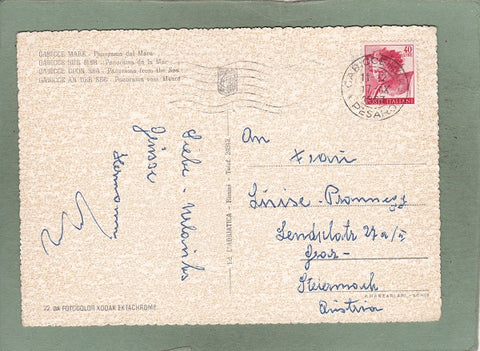 GABICCE MARE - Panorama dal Mare
GABICCE SUR MER - Panorama de la Mer
GABICCE UPON SEA - Panorama from the Sea
GABICCE AN DER SEE - Panorama vom Meere
40
POSTE ITALIANE
GABICCE
PESARO
An
Frau
Lendplatz 27a/II
Graz
Steiermark
Austria
Liebe Urlaubs
Grüsse
Hermann
LA - Rimini - Telef.
22 DA FOTOCOLOR KODAK EKTACHROME